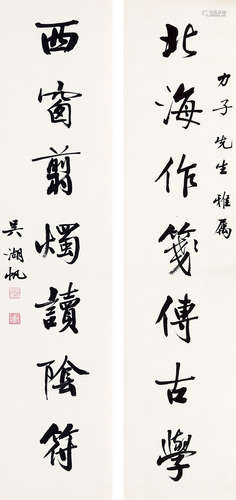 力子先生雅属
北海作箋傳古學
西窗翦燭讀陰符
吳湖帆